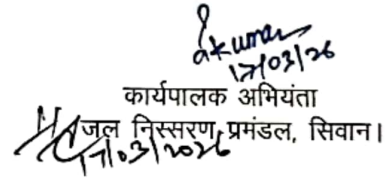 17/03/26
कार्यपालक अभियंता
जल निस्सरण प्रमंडल, सिवान।
17/03/2026